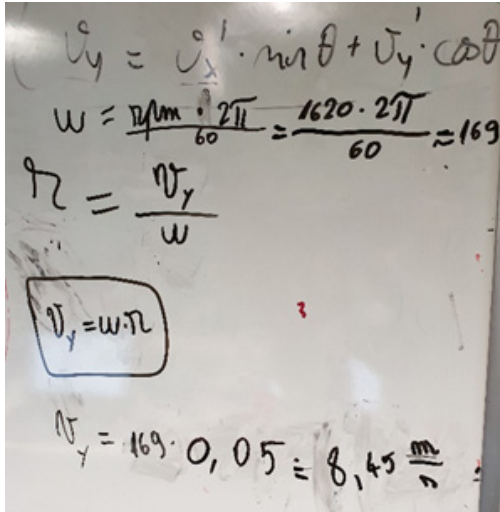 ( v_y = v_x' · sin θ + v_y' · cos θ
w = rpm · 2π / 60 = 1620 · 2π / 60 ≈ 169
r = v_y / w
v_y = w·r
v_y = 169 · 0,05 = 8,45 m/s